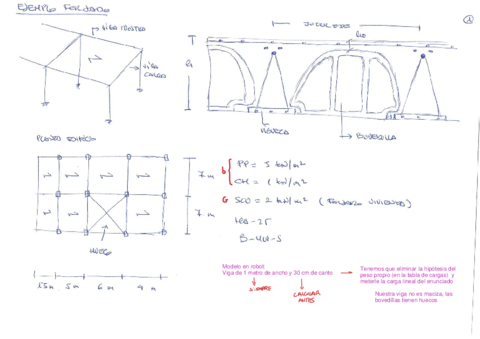 EJEMPLO FORJADO
VIGA RIOSTRA
VIGA
CARGA
INTEREJE
RIO
BOVEDILLA
PLANTA EDIFICIO
HUECO
7 m
7 m
5 m
6 m
4 m
PP = 3 kN/m²
CM = 1 kN/m²
G
SCU = 2 kN/m² (
HA-25
B-
Modelo en robot
Viga de 1 metro de ancho y 30 cm de canto
SIEMPRE
CALCULAR
ANTES
Tenemos que eliminar la hipótesis del
peso propio (en la tabla de cargas) y
meterle la carga lineal del enunciado
Nuestra viga no es maciza, las
bovedillas tienen huecos